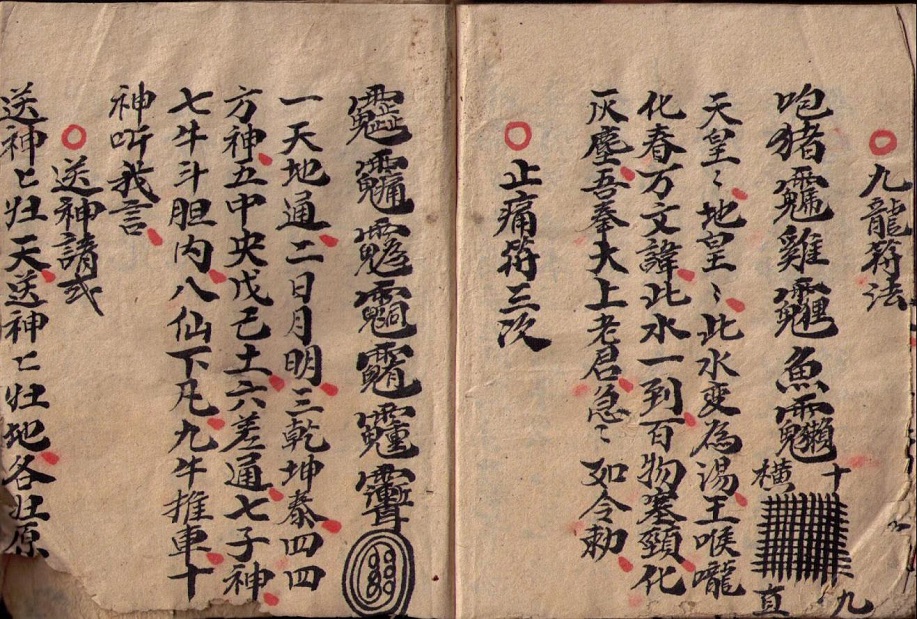 九龍符法
咆猪 雞 魚 十九橫直
天皇〻地皇〻此水变為湯王喉嚨
化春万文諱此水一到百物塞頸化
灰塵吾奉大上老君急〻如令勅
止痛符三次
一天地通二日月明三乾坤泰四四
方神五中央戊己土六差通七子神
七牛斗胆内八仙下凡九牛推車十
神听我言
送神請式
送神〻归天送神〻归地各归原